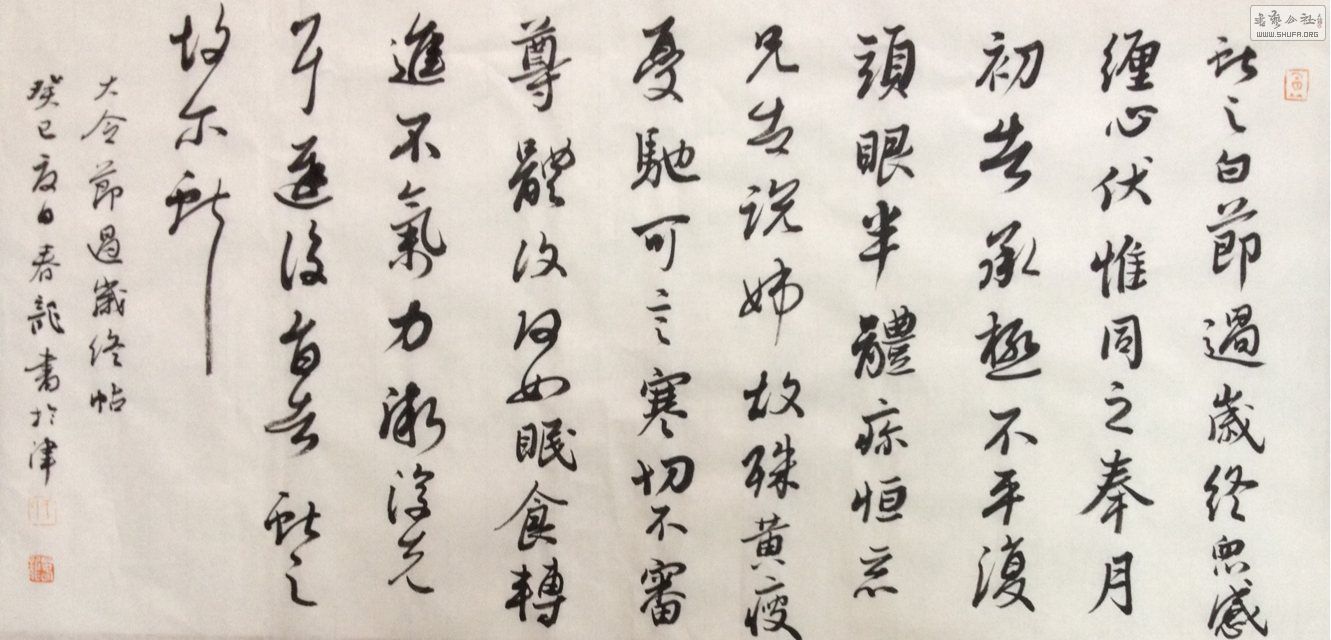 献之白节過歲终眾感
缠心伏惟同之奉月
初告承極不平復
頭眼半體疼恒恶
兄告説姊故殊黄瘦
憂馳可言寒切不審
尊體復何如眠食轉
進不氣力漸復先
耳遲復旨告 献之
故尔献
大令節過歲终帖
癸巳夏日春龍書於津
書藝公社
WWW.SHUFA.ORG